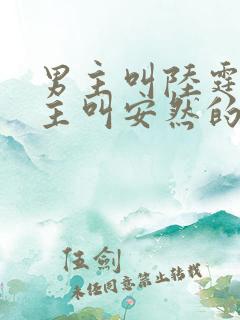 男主叫陆霆
主叫安然的
伍剑
未经同意禁止转载